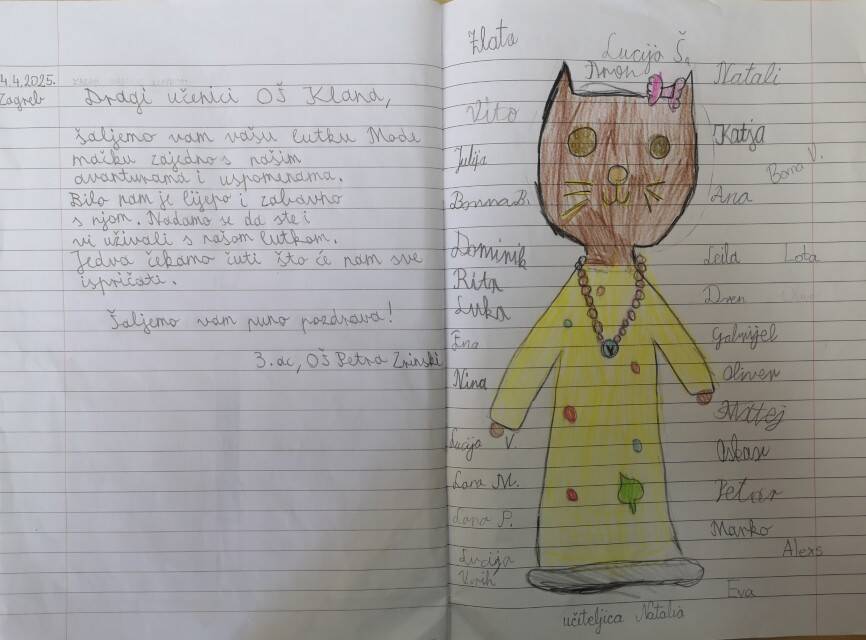 4.4.2025.
Zagreb
Dragi učenici OŠ Klana,
šaljemo vam vašu lutku Mode
mačku zajedno s našim
avanturama i uspomenama.
Bilo nam je lijepo i zabavno
s njom. Nadamo se da ste i
vi uživali s našom lutkom.
Jedva čekamo čuti što će nam sve
ispričati.
Šaljemo vam puno pozdrava!
3. ac, OŠ Petra Zrinski
Zlata
Vito
Julija
Bruna B.
Dominik
Rita
Luka
Ena
Nina
Lucija V.
Lana M.
Lana P.
Lucija
Lucija Š.
Aron
V
Natali
Katja
Borna V.
Ana
Leila
Lota
Dren
Gabrijel
Oliver
Matej
Oskar
Petar
Marko
Alexs
Eva
učiteljica Natalia